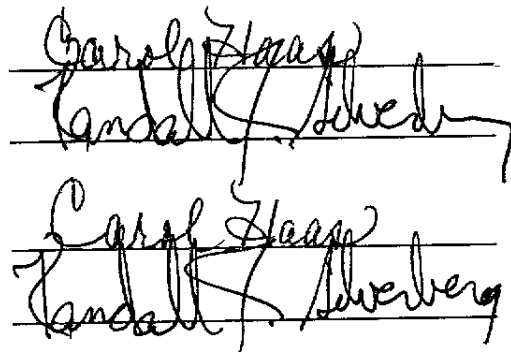 Carol Haase
Randall J. Silverberg
Carol Haase
Randall J. Silverberg